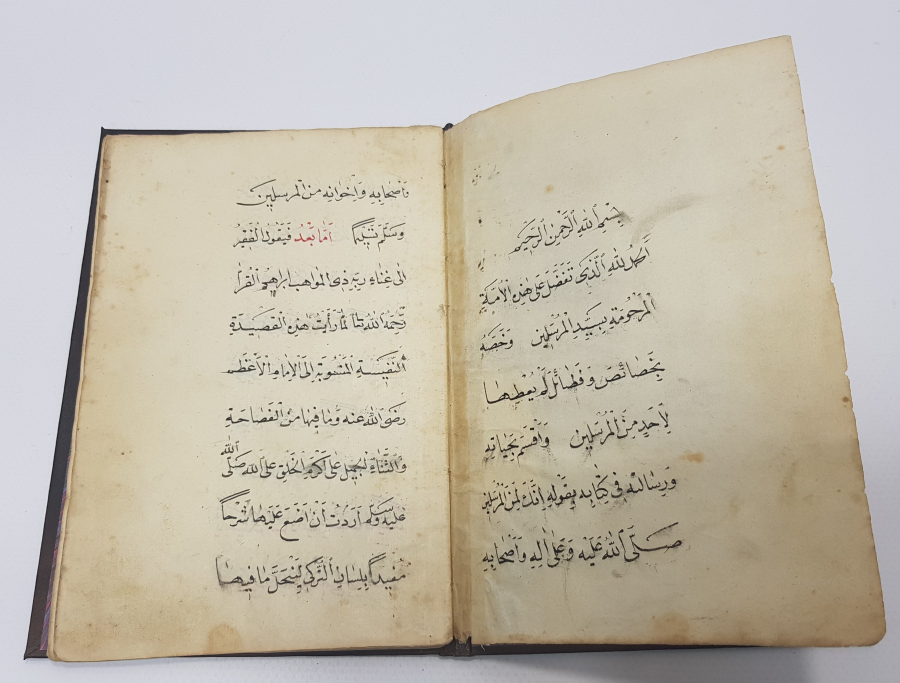 بِسْمِ اللهِ الرَّحْمٰنِ الرَّحِيمِ
اَلْحَمْدُ لِلهِ الَّذِى تَفَضَّلَ عَلٰى هٰذِهِ الْاُمَّةِ
الْمَرْحُومَةِ بِسَيِّدِ الْمُرْسَلِين وَخَصَّهُ
بِخَصَائِصَ وَفَضَائِلَ لَمْ يُعْطِهَا
لِاَحَدٍ مِنَ الْمُرْسَلِين وَاَقْسَمَ بِحَيَاتِهِ
وَرِسَالَتِهِ فِى كِتَابِهِ بِقَوْلِهِ اِنَّكَ لَمِنَ الْمُرْسَلِين
صَلَّى اللهُ عَلَيْهِ وَعَلٰى اٰلِهِ وَاَصْحَابِهِ
وَاَصْحَابِهِ وَاِخْوَانِهِ مِنَ الْمُرْسَلِين
وَسَلَّمَ تَسْلِيمًا اَمَّا بَعْدُ فَيَقُولُ الْفَقِيرُ
اِلٰى غَنَاءِ رَبِّهِ ذِى الْمَوَاهِبِ اِبْرَاهِيمُ
رَحِمَهُ اللهُ تعالى لَمَّا رَأَيْتُ هٰذِهِ الْقَصِيدَةَ
النَّفِيسَةَ الْمَنْسُوبَةَ اِلَى الْاِمَامِ الْاَعْظَمِ
رَضِىَ اللهُ عَنْهُ وَمَا فِيهَا مِنَ الْفَصَاحَةِ
وَالثَّنَاءِ الْجَمِيلِ عَلٰى اَكْرَمِ الْخَلْقِ عَلَى اللهِ صَلَّى اللهُ
عَلَيْهِ وَسَلَّمَ اَرَدْتُ اَنْ اَضَعَ عَلَيْهَا شَرْحًا
مُفِيدًا بِلِسَانِ التُّرْكِى لِيَنْحَلَّ مَا فِيهَا